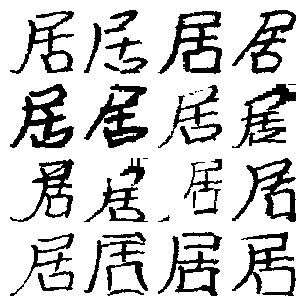 居居居居
居居居居
居居居居
居居居居